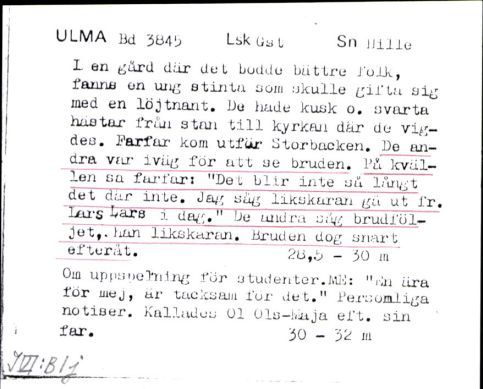 ULMA Bd 3845 Lsk Gst Sn Hille
I en gård där det bodde bättre folk,
fanns en ung stinta som skulle gifta sig
med en löjtnant. De hade kusk o. svarta
hästar från stan till kyrkan där de vig-
des. Farfar kom utför Storbacken. De an-
dra var iväg för att se bruden. På kväl-
len sa farfar: "Det blir inte så långt
det där inte. Jag såg likskaran gå ut fr.
Lars Lars i dag." De andra såg brudföl-
jet, han likskaran. Bruden dog snart
efteråt. 28,5 - 30 m
Om uppspelning för studenter. ME: "En ära
för mej, är tacksam för det." Personliga
notiser. Kallades Ol Ols-Maja eft. sin
far. 30 - 32 m
JVI:B1j